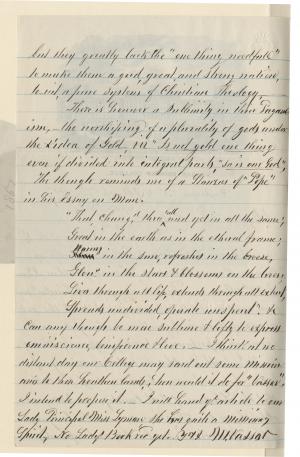 but they greatly lack the "one thing needful"
to make them a good, great, and strong nation,
to wit, a pure system of Christian Theology.
There is however a sublimity in their Pagan
ism, — the worshiping of a plurality of gods under
the idea of Gold, "Is not gold one thing
even if divided into integral parts, "so is our God",
The thought reminds me of a Stanza of "Pope"
in his Essay on Man.
"That, chang'd thro' all and yet in all the same;
Great in the earth as in the etherial frame;
Warms in the sun, refreshes in the breeze,
Glows in the stars & blossoms on the trees,
Lives through all life, extends through all extent,
Spreads undivided, operates unspent".
can any thought be more sublime & lofty to express
omniscience, omnipresence & love. — I think at no
distant day our College may send out some Mission
aries to those heathen lands; then would it do for "Vassar"
I intend to propose it. I will send y'r article to our
Lady Principal Miss Lyman she has quite a Missionary
Spirit, No Lady's Book rec'd yet. M Vassar